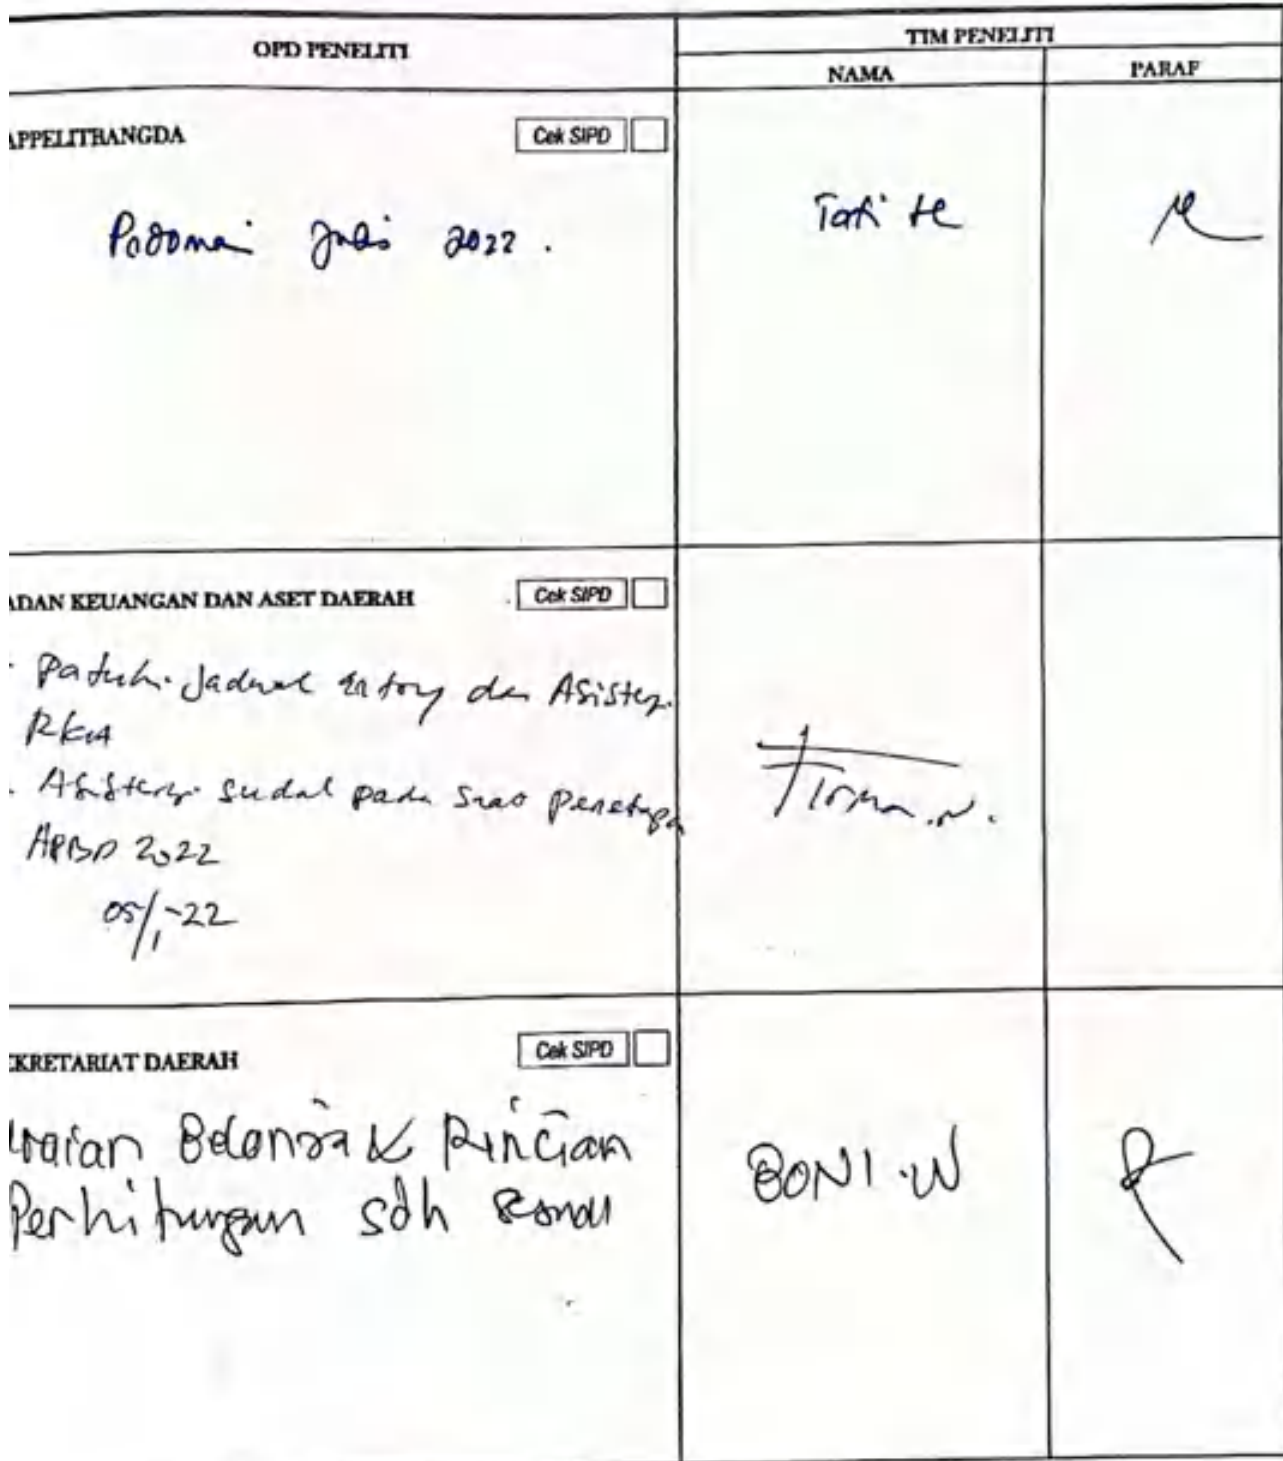 OPD PENELITI
TIM PENELITI
NAMA
PARAF
APPELITBANGDA
Cek SIPD
2022.
Tati
ADAN KEUANGAN DAN ASET DAERAH
Cek SIPD
- Patuhi Jadwal entry dan Asistensi
RKA
- Asistensi sudah pada saat penetapa
APBD 2022
05/1-22
Firman.N.
EKRETARIAT DAERAH
Cek SIPD
Uraian Belanja & Rincian
Perhitungan sdh sesuai
BONI.W